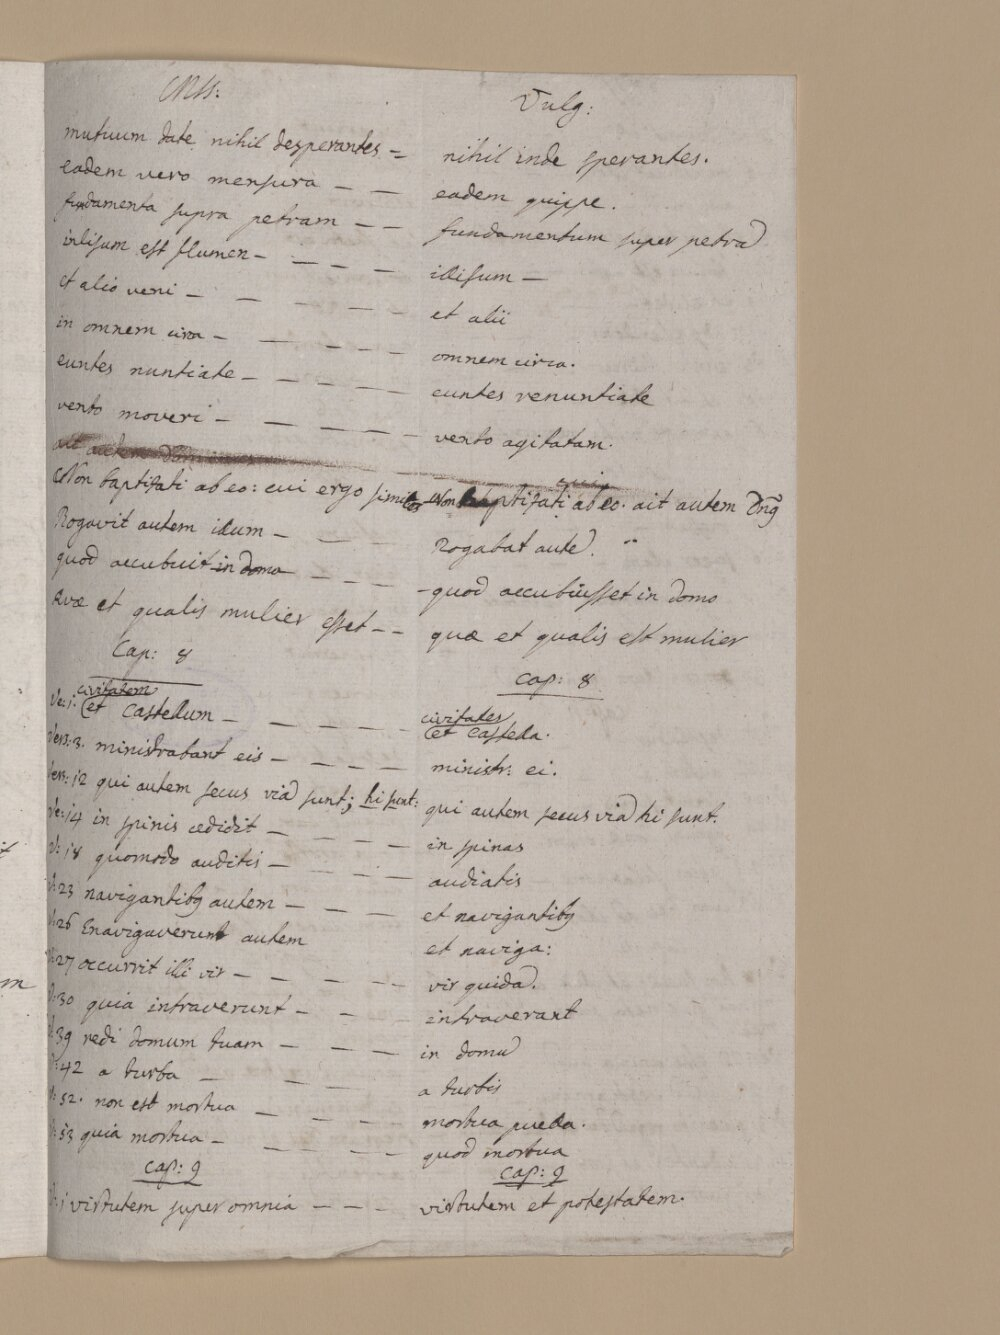 Mss: Vulg:
mutuum date nihil desperantes = nihil inde sperantes.
eadem vero mensura — — eadem quippe.
fundamenta supra petram — — fundamentum super petrā
inlisum est flumen — — — — illisum —
et alio veni — — — — — et alii
in omnem circa — — — — — omnem circa.
euntes nuntiate — — — — — euntes renuntiate
vento moveri — — — — — vento agitatam.
ait autem dominus
Non baptisati ab eo: cui ergo similes — Non baptisati ab eo. ait autem Dn̄s
Rogavit autem illum — — — Rogabat autē.
quod accubuit in domo — — — — quod accubuisset in domo
Quæ et qualis mulier esset — — quæ et qualis est mulier
Cap: 8 Cap: 8
civitatem civitates
Ve: 1. et Castellum — — — — — et castella.
Vers: 3. ministrabant eis — — — — ministr: ei.
Vers: 12 qui autem secus viā sunt; hi sunt: qui autem secus viā hi sunt.
Ve: 14 in spinis cedidit — — — — in spinas
V: 18 quomodo auditis — — — — audiatis
V: 23 navigantibq autem — — — et navigantibq
V: 26 Enavigaverunt autem et naviga:
V: 27 occurrit illi vir — — — — vir quidā.
V: 30 quia intraverunt — — — intraverant
V: 39 redi domum tuam — — — in domū
V: 42 a turba — — — a turbis
V: 52. non est mortua — — — mortua puella.
V: 53 quia mortua — — — — quod mortua
Cap: 9 Cap: 9
V: 1 virtutem super omnia — — — virtutem et potestatem.